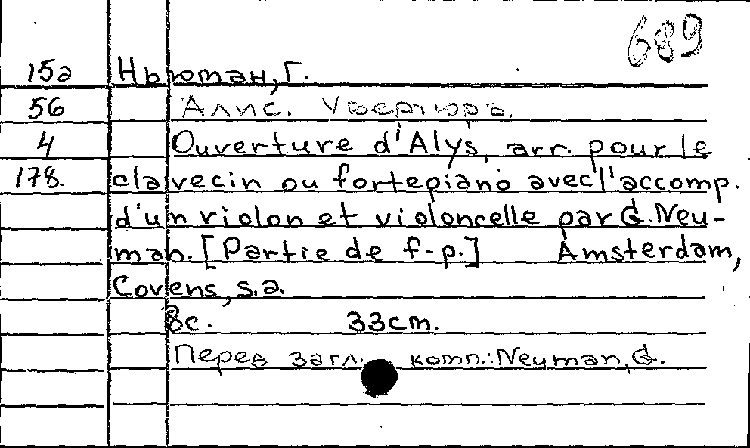 689
15а Ньюман, Г.
56 Алис. Увертюра.
4 Ouverture d'Alys, arr. pour le
178. clavecin ou fortepiano avec l'accomp.
d'un violon et violoncelle par G. Neu-
man. [Partie de f-p.] Amsterdam,
Covens, s.a.
8с. 33cm.
Перед загл. комп.: Neuman, G.